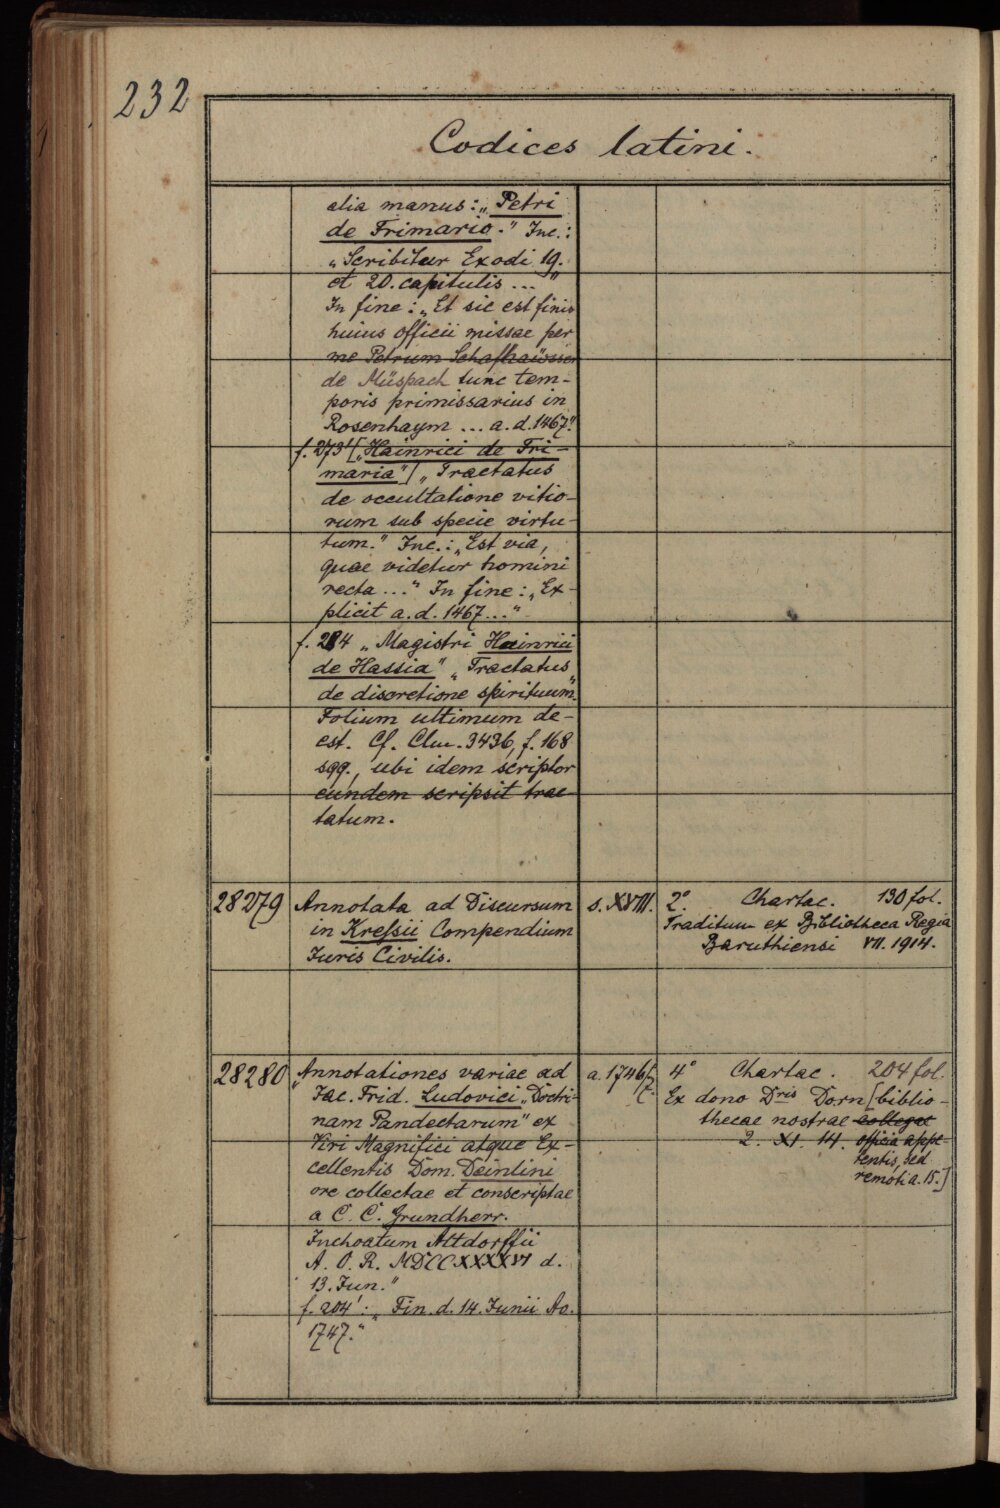 232
Codices latini.
alia manus: „Petri
de Frimario." Inc.:
„Scribitur Exodi 19.
et 20. capitulis ..."
In fine: „Et sic est finis
huius officii missae per
me Petrum Schafhaüsser
de Müspach tunc tem-
poris primissarius in
Rosenhaym ... a. d. 1467."
f. 273' [„Hainrici de Fri-
maria"] „Tractatus
de occultatione vitio-
rum sub specie virtu-
tum." Inc.: „Est via,
quae videtur homini
recta ..." In fine: „Ex-
plicit a. d. 1467 ..."
f. 284 „Magistri Hainrici
de Hassia" „Tractatus
de discretione spirituum"
Folium ultimum de-
est. Cf. Clm. 3436, f. 168
sqq., ubi idem scriptor
eundem scripsit trac-
tatum.
28279 Annotata ad Discursum s. XVIII. 2° Chartac. 130 fol.
in Kressii Compendium Traditum ex Bibliotheca Regia
Iuris Civilis. Baruthiensi VII. 1914.
28280 „Annotationes variae ad a. 1746/7. 4° Chartac. 204 fol.
Iac. Frid. Ludovici „Doctri- Ex dono Dris Dorn [biblio-
nam Pandectarum" ex thecae nostrae collegae
Viri Magnifici atque Ex- 2. XI. 14. officia appe-
cellentis Dom. Deinlini tentis, sed
ore collectae et conscriptae remoti a. 15.]
a C. C. Grundherr.
Inchoatum Altdorffii
A. O. R. MDCCXXXXVI d.
13. Jun."
f. 204': „Fin. d. 14. Junii Ao.
1747."